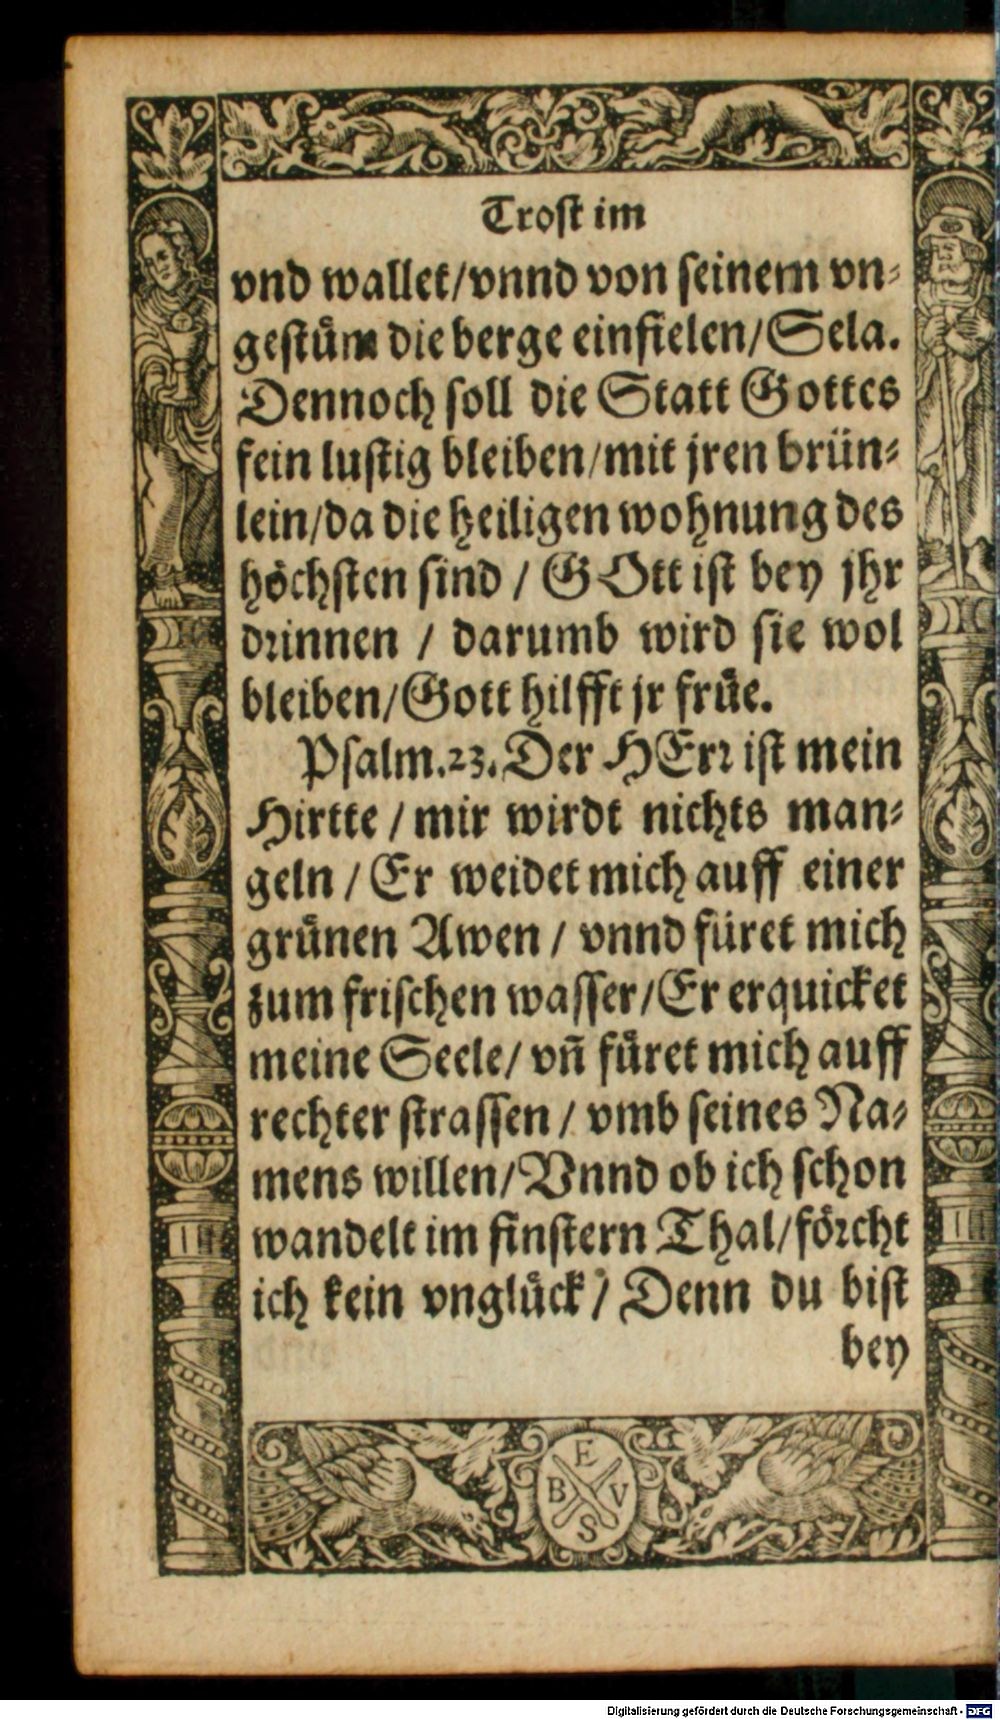 Trost im
vnd wallet/vnnd von seinem vn⸗
gestuͤm die berge einfielen/Sela.
Dennoch soll die Statt Gottes
fein lustig bleiben/mit jren bruͤn⸗
lein/da die heiligen wohnung des
hoͤchsten sind / GOtt ist bey jhr
drinnen / darumb wird sie wol
bleiben/Gott hilfft jr fruͤe.
Psalm.23.Der HErr ist mein
Hirtte / mir wirdt nichts man⸗
geln / Er weidet mich auff einer
gruͤnen Awen / vnnd fuͤret mich
zum frischen wasser/Er erquicket
meine Seele/ vn̄ fuͤret mich auff
rechter strassen / vmb seines Na⸗
mens willen/Vnnd ob ich schon
wandelt im finstern Thal/foͤrcht
ich kein vngluͤck / Denn du bist
bey
E
B V
S
Digitalisierung gefördert durch die Deutsche Forschungsgemeinschaft - DFG